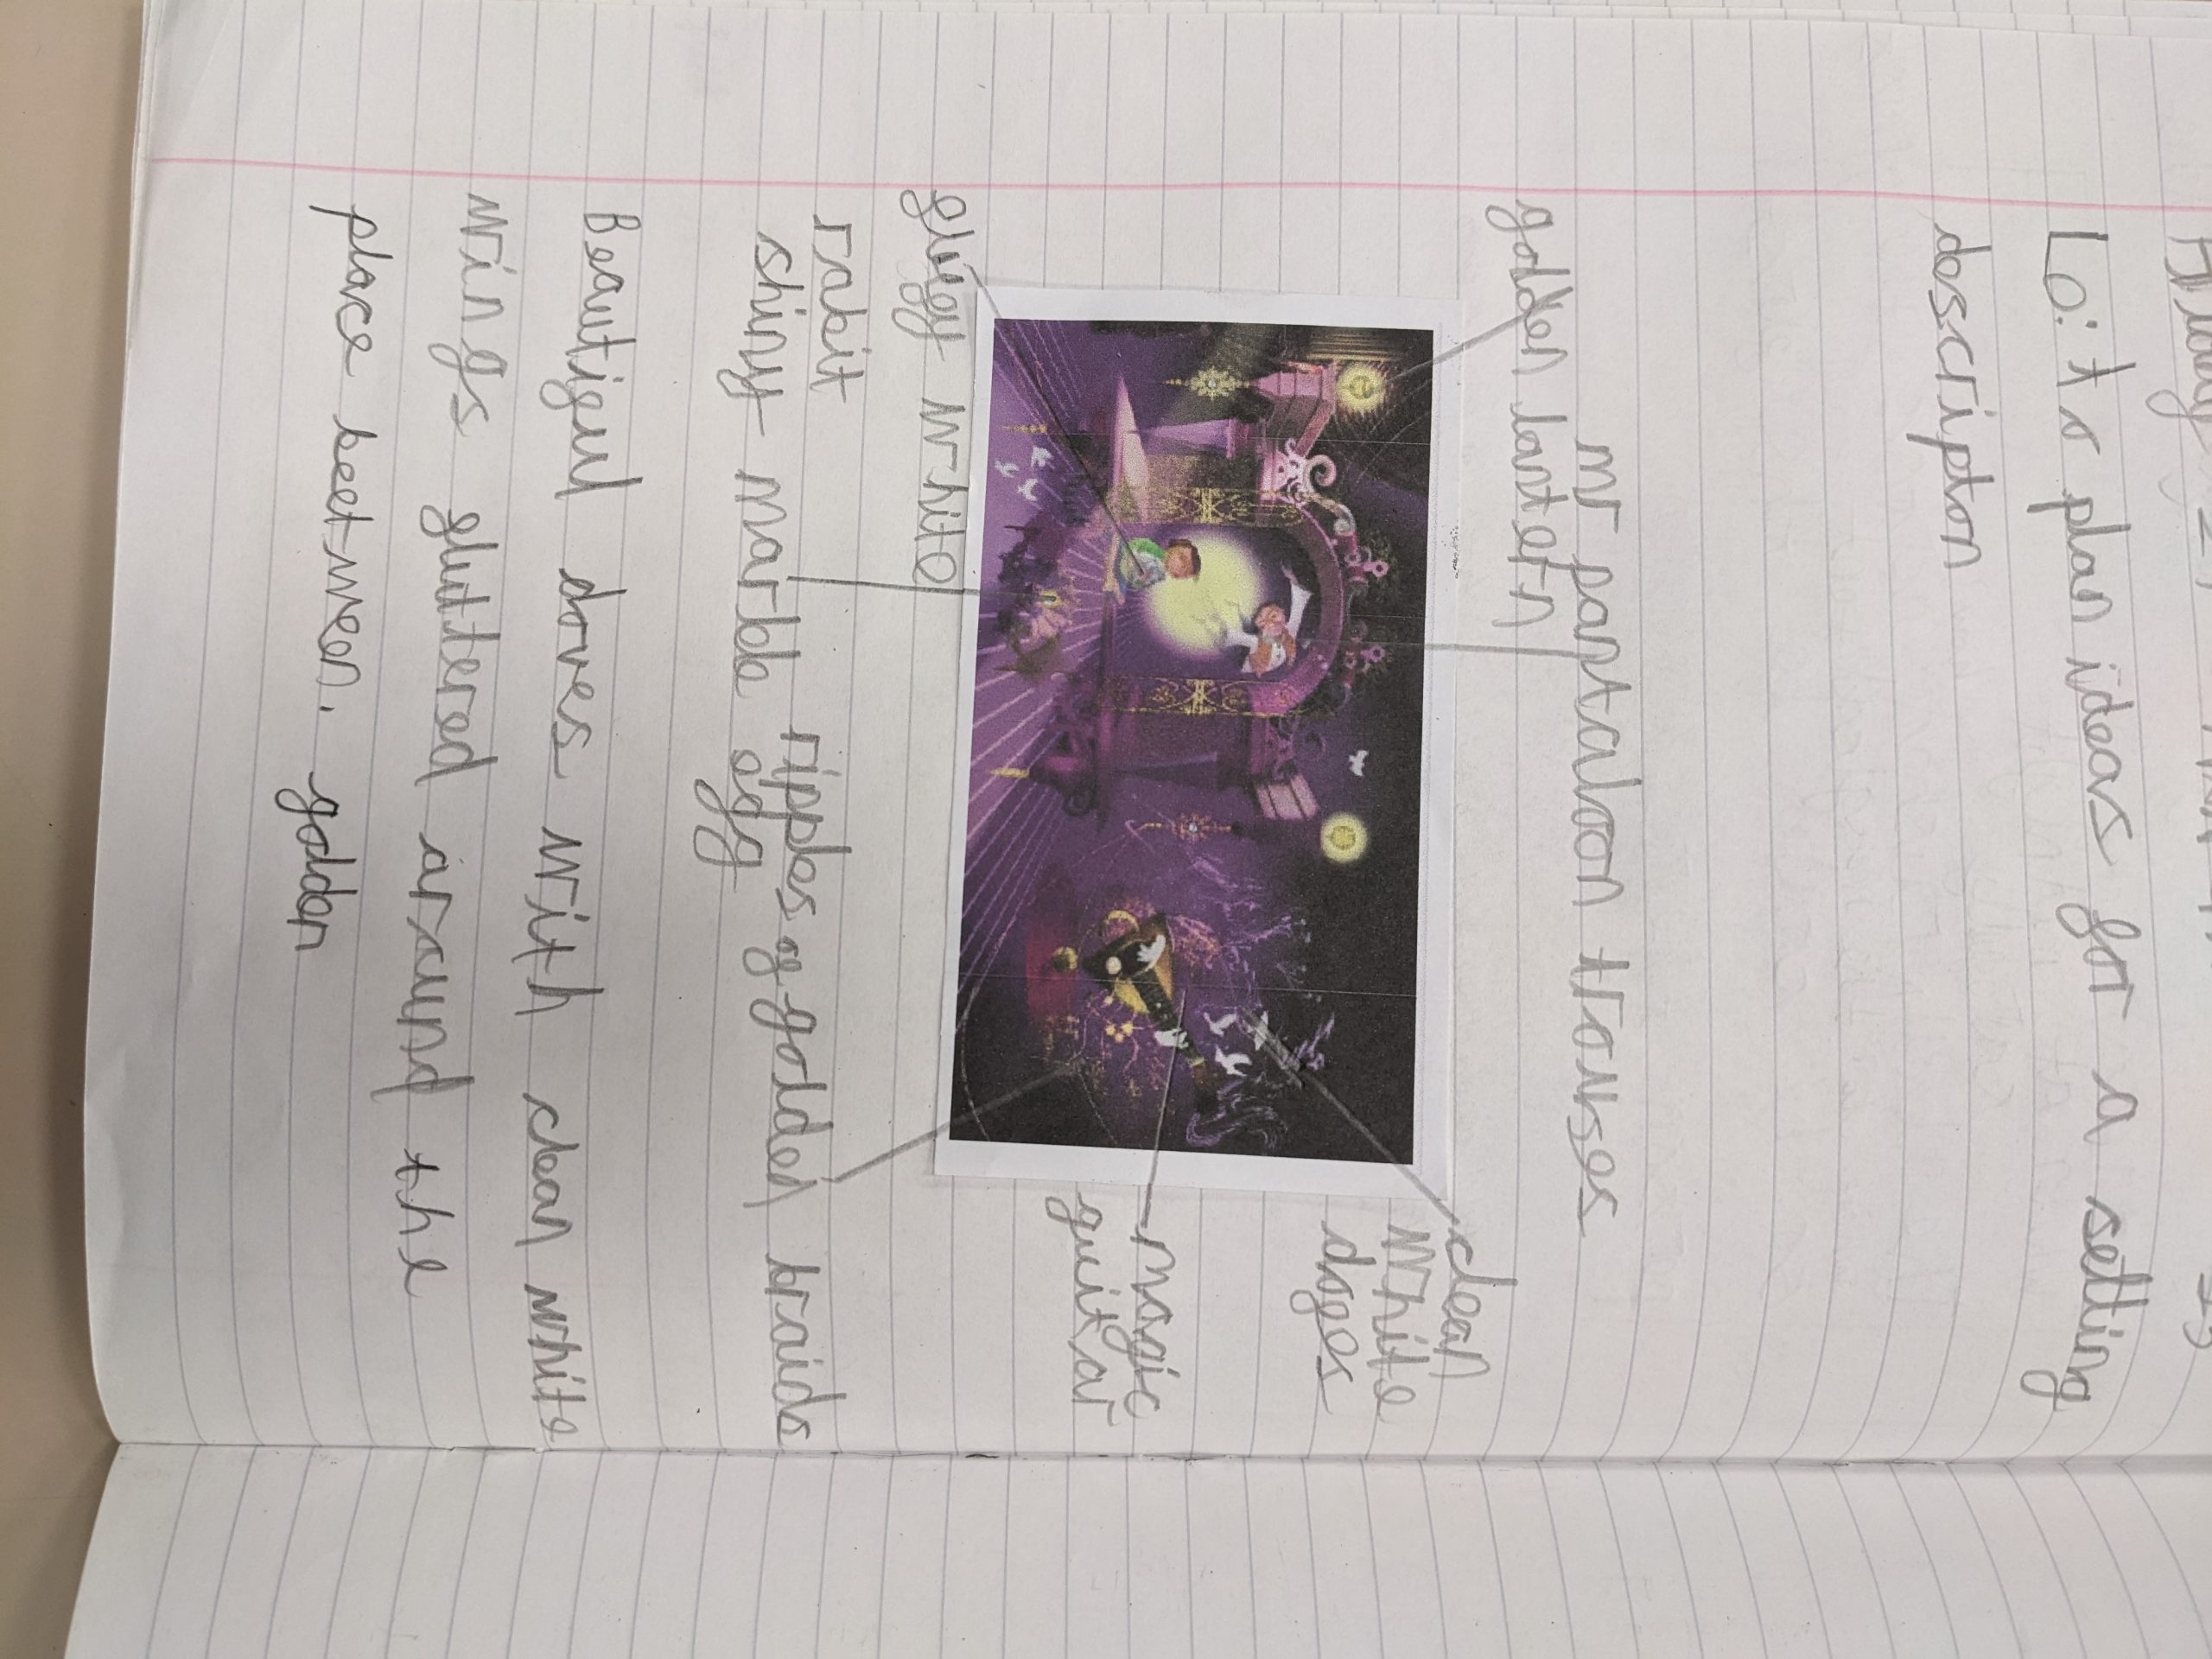 L.o: to plan ideas for a setting
descripton
mr pantaloon trouses
golden lantern
clean
white
doges
magic
guitar
gluffy white
rabit
ripples of golden braids
shiny marble egg
Beautiful doves with clean white
wings fluttered around the
place between. golden